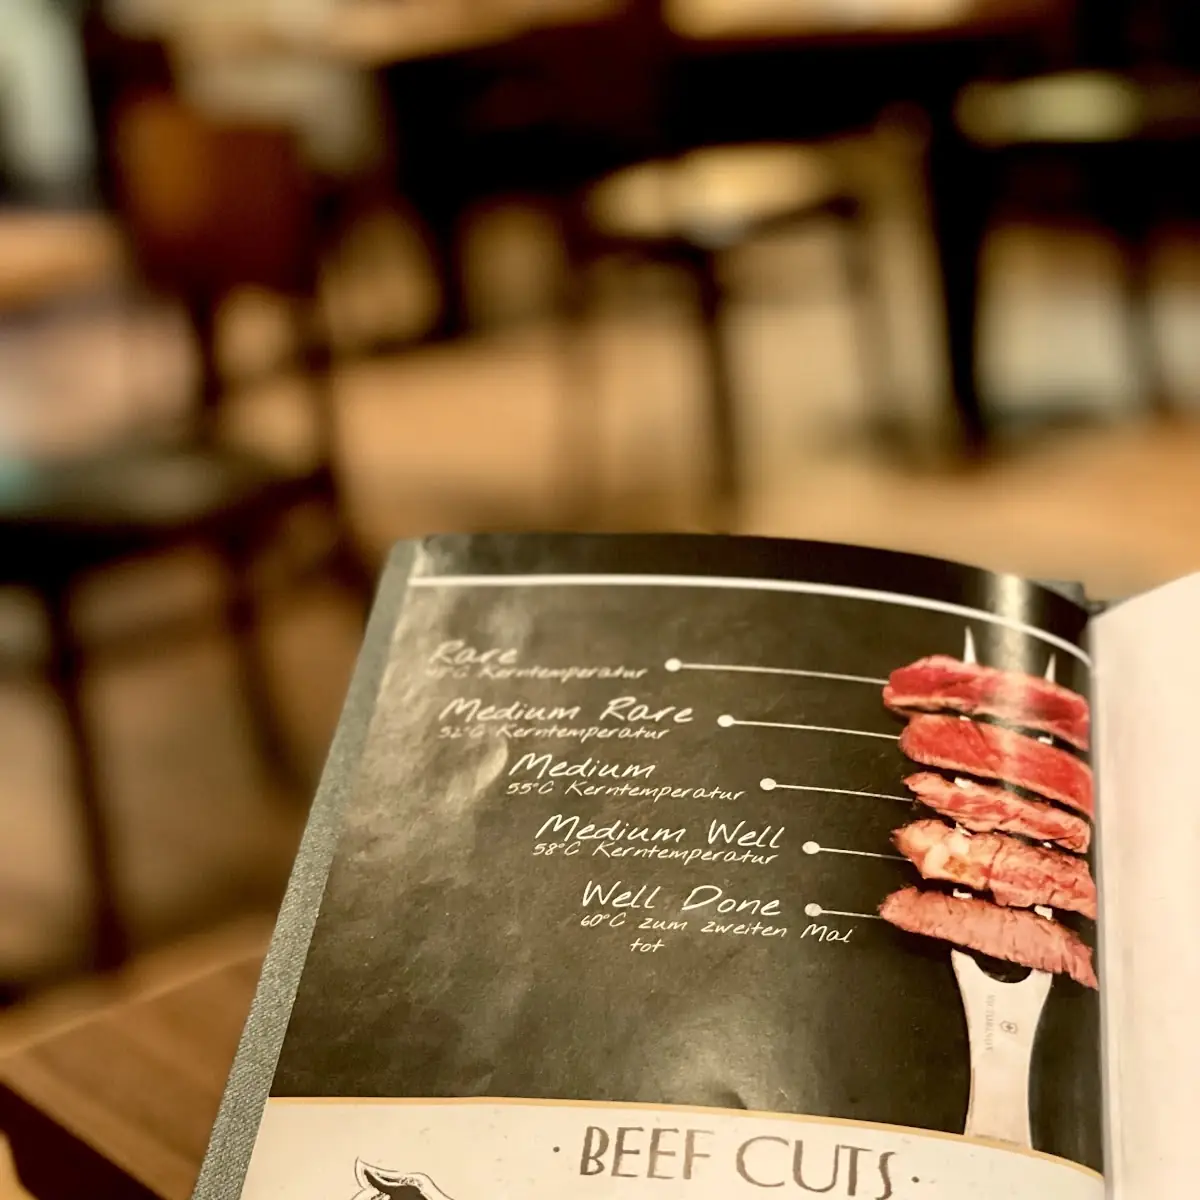 Rare
°C Kerntemperatur
Medium Rare
52°C Kerntemperatur
Medium
55°C Kerntemperatur
Medium Well
58°C Kerntemperatur
Well Done
60°C zum zweiten Mal
tot
VICTORINOX
· BEEF CUTS ·